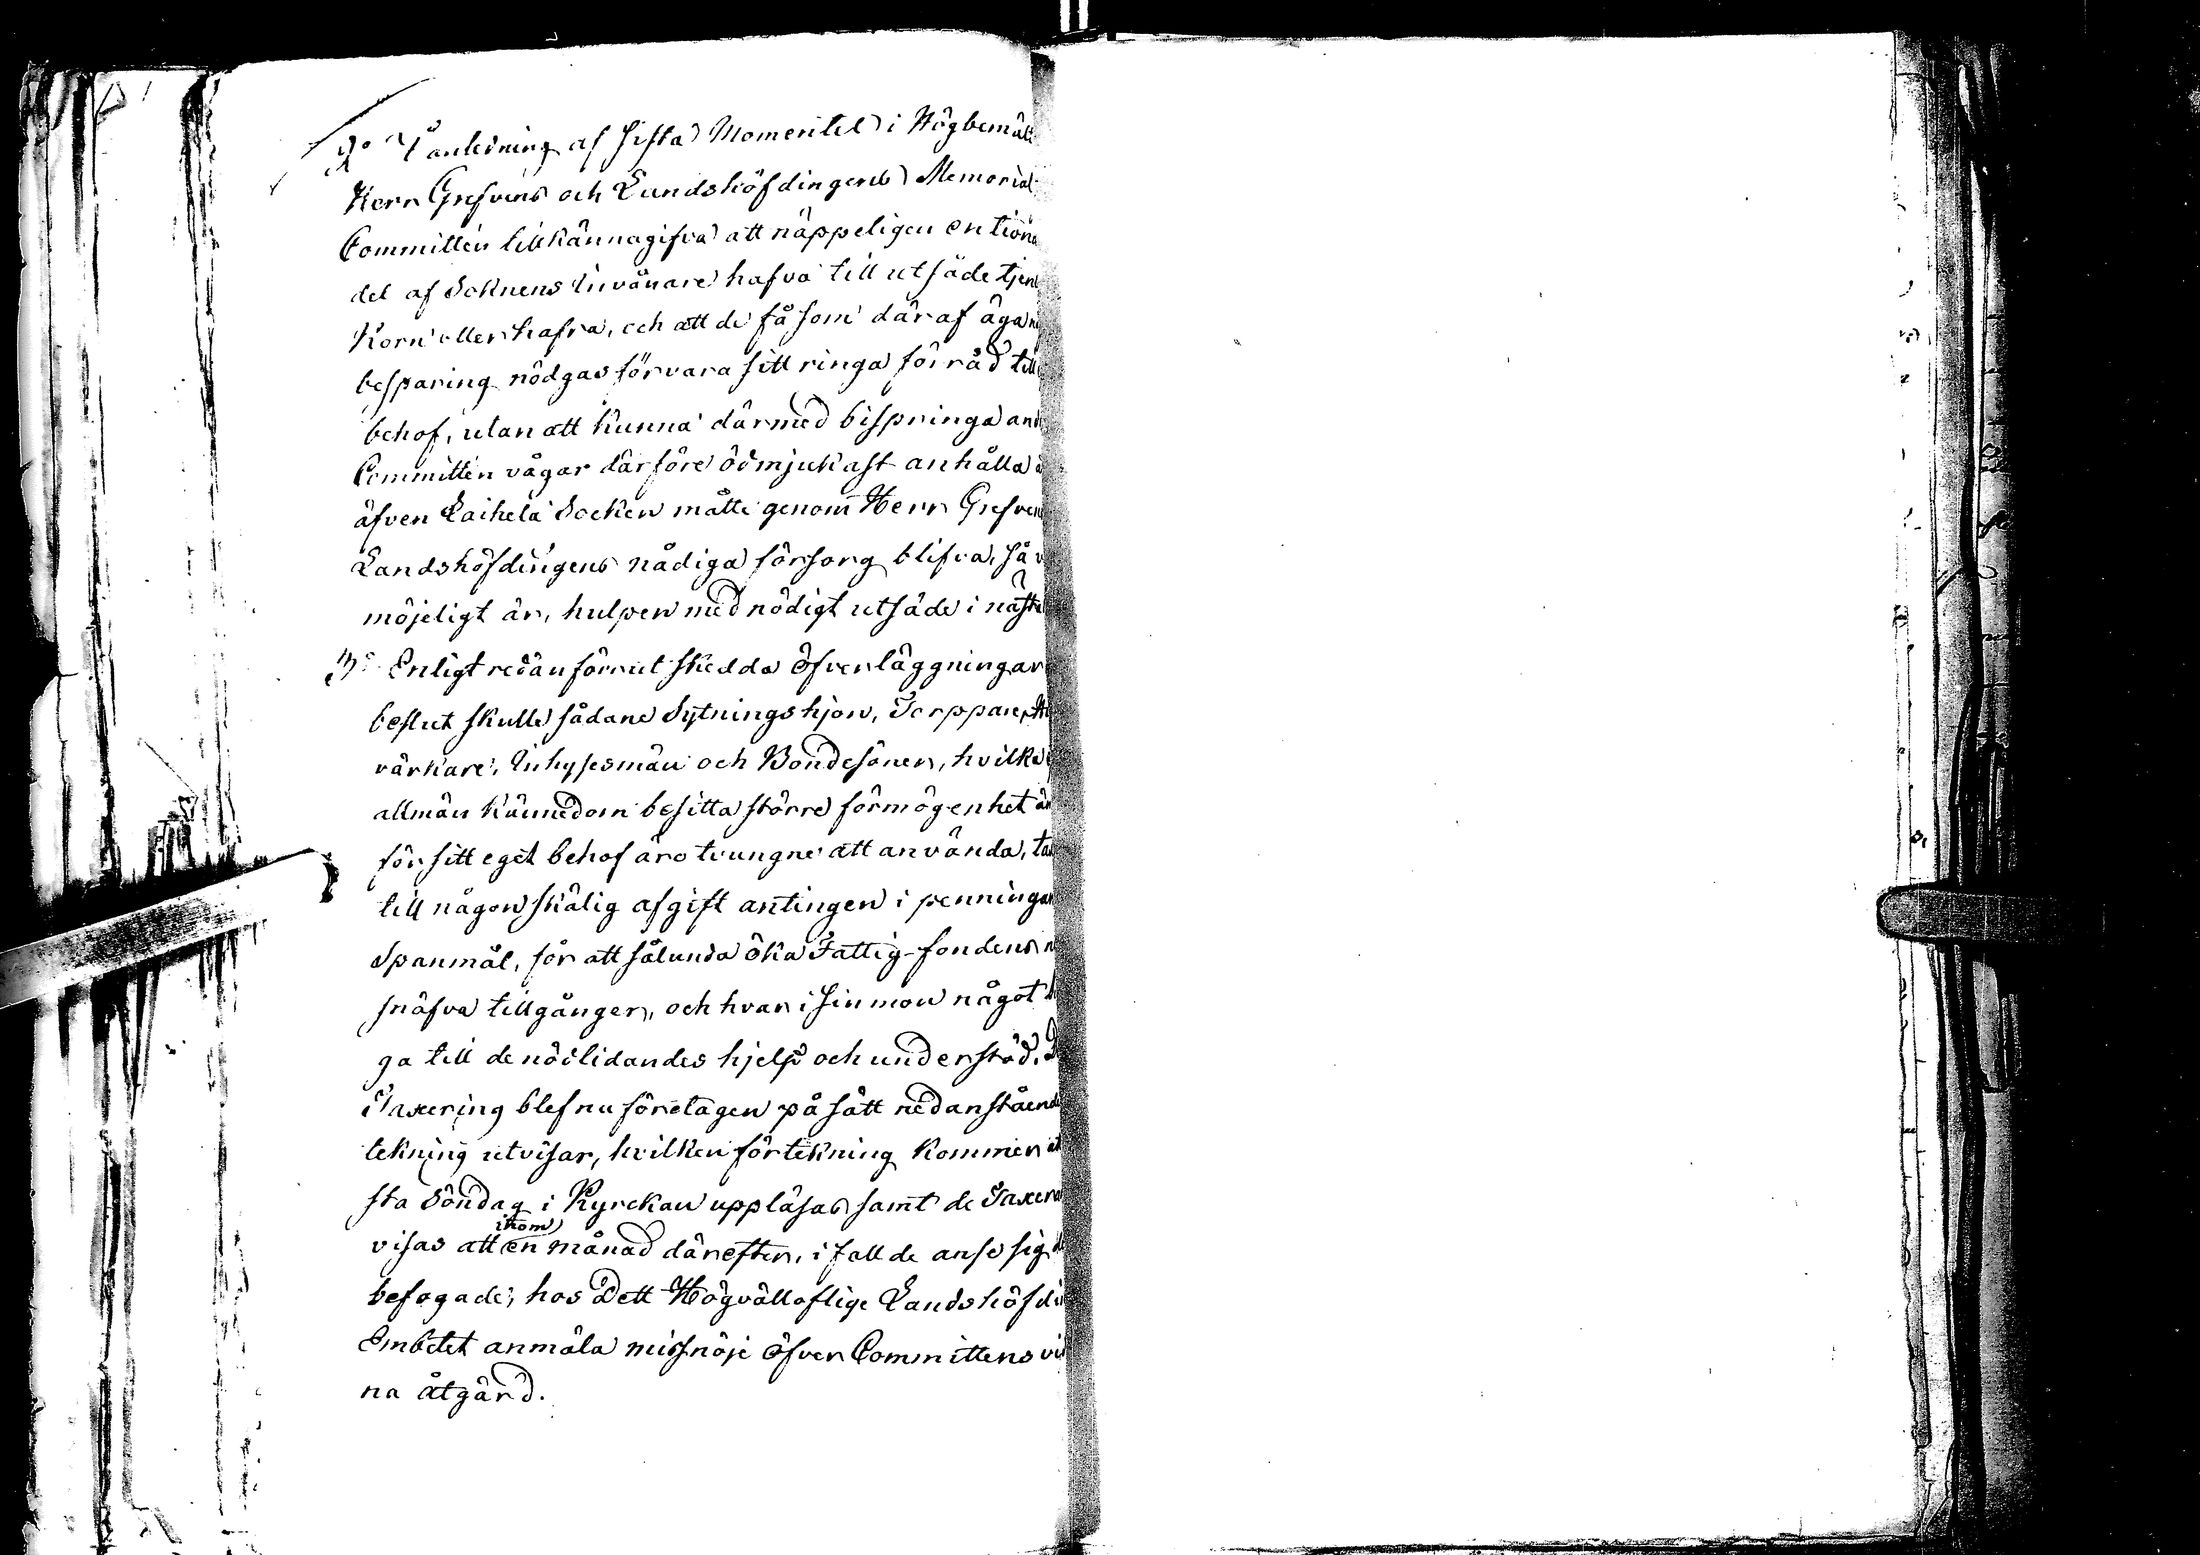 2:o I anledning af sista Momentet i Högbemäl
Herr Grefvens och Landshöfdingens Memorial
Committén tillkännagifva att näppeligen en tion
del af Soknens Invånare hafva till utsäde tjen
Korn eller hafra, och att de få som däraf äga
besparing nödgas förvara sitt ringa förråd till
behof, utan att kunna därmed bispringa and
Committén vågar därföre ödmjukast anhålla
äfven Laihela Socken måtte genom Herr Grefven
Landshöfdingens nådiga försorg blifva, så
möjeligt är, hulpen med nödigt utsäde i nästa
3:o Enligt redan förrut skedda öfverläggningar
beslut skulle sådane Sytningshjon, Torppare,
värkare, Inhysesmän och Bondesöner, hvilka
allmän kännedom besitta större förmögenhet än
för sitt eget behof äro tvungne att använda, tax
till någon skälig afgift antingen i penningar
Spanmål, för att sålunda öka Fattig-fondens
snäfva tillgånger, och hvar i sin mon något
ga till de nödlidandes hjelp och understöd.
Taxering blef nu företagen på sätt nedanstående
tekning utvisar, hvilken förtekning kommer at
sta Söndag i Kyrckan uppläsas samt de Taxera
visas att inom en månad därefter, i fall de anse sig
befogade, hos Dett Högvälloflige Landshöfdi
Embetet anmäla missnöje öfver Committens vid
na åtgärd.